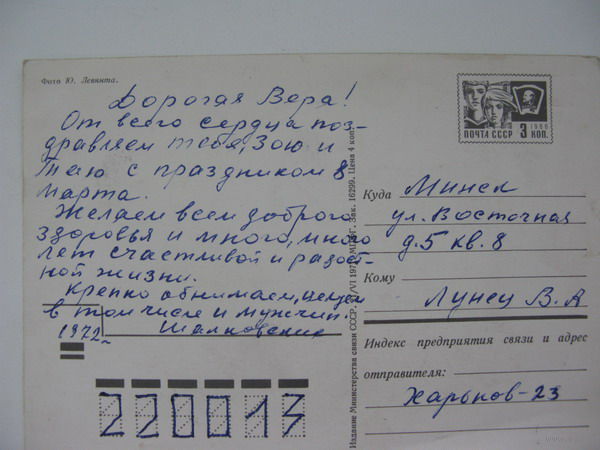 Фото Ю. Левянта.
Дорогая Вера!
От всего сердца поз-
дравляем тебя, Зою и
Таю с праздником 8
марта.
Желаем всем доброго
здоровья и много, много
лет счастливой и радост-
ной жизни.
Крепко обнимаем, целуем
в том числе и мужчин.
1972 г. Шалковские
220013
ПОЧТА СССР 3 КОП. 1966
Издание Министерства связи СССР. Зак. 16299. Цена 4 коп.
Куда Минск
ул. Восточная
д. 5 кв. 8
Кому
Лунец В. А
Индекс предприятия связи и адрес
отправителя:
Харьков-23